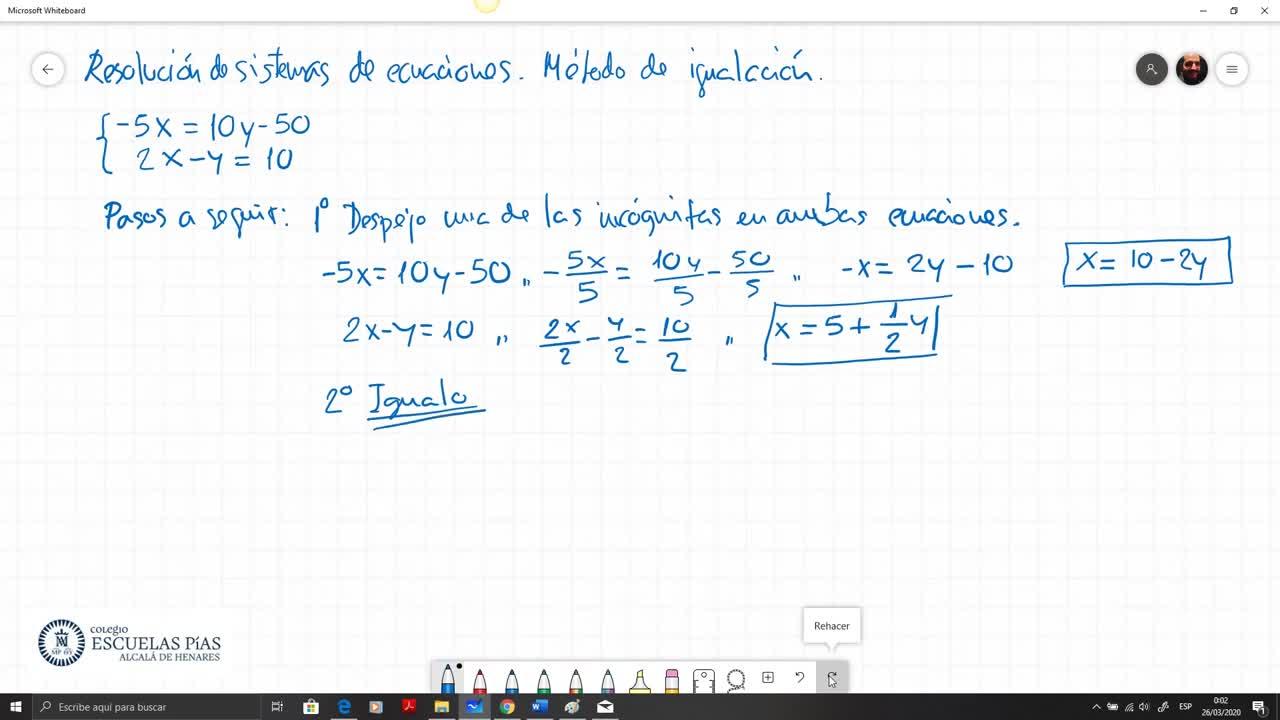 Microsoft Whiteboard
Resolución de sistemas de ecuaciones. Método de igualación.
-5x = 10y - 50
2x - y = 10
Pasos a seguir: 1º Despejo una de las incógnitas en ambas ecuaciones.
-5x = 10y - 50 ,, - 5x/5 = 10y/5 - 50/5 ,, -x = 2y - 10 x = 10 - 2y
2x - y = 10 ,, 2x/2 - y/2 = 10/2 ,, x = 5 + 1/2 y
2º Igualo
COLEGIO
ESCUELAS PÍAS
ALCALÁ DE HENARES
Rehacer
Escribe aquí para buscar
ESP
0:02
26/03/2020